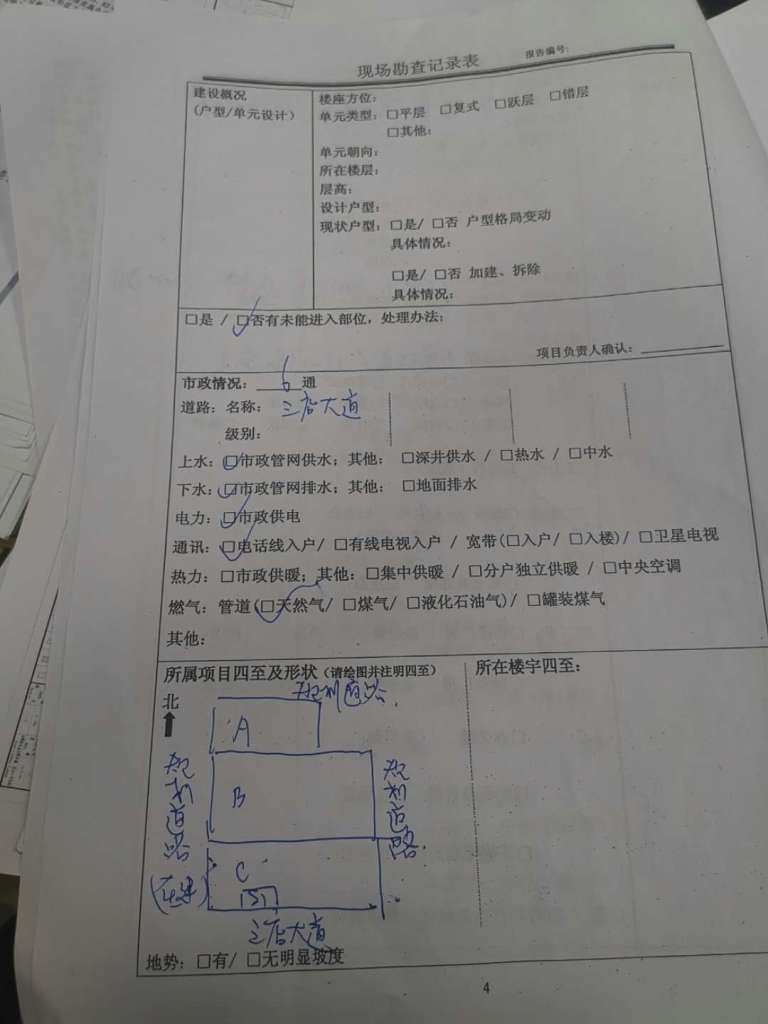 现场勘查记录表
报告编号:
建设概况
(户型/单元设计)
楼座方位:
单元类型: □平层 □复式 □跃层 □错层
□其他:
单元朝向:
所在楼层:
层高:
设计户型:
现状户型: □是/ □否 户型格局变动
具体情况:
□是/ □否 加建、拆除
具体情况:
□是 / ☑否有未能进入部位，处理办法:
项目负责人确认:
市政情况: 6 通
道路: 名称: 三店大道
级别:
上水: ☑市政管网供水; 其他: □深井供水 / □热水 / □中水
下水: ☑市政管网排水; 其他: □地面排水
电力: ☑市政供电
通讯: ☑电话线入户/ □有线电视入户 / 宽带(□入户/ □入楼)/ □卫星电视
热力: □市政供暖; 其他: □集中供暖 / □分户独立供暖 / □中央空调
燃气: 管道(☑天然气/ □煤气/ □液化石油气)/ □罐装煤气
其他:
所属项目四至及形状 (请绘图并注明四至)
所在楼宇四至:
北
规划道路
A
规划道路
B
规划道路
(在建)
C
三店大道
地势: □有/ □无明显坡度
4